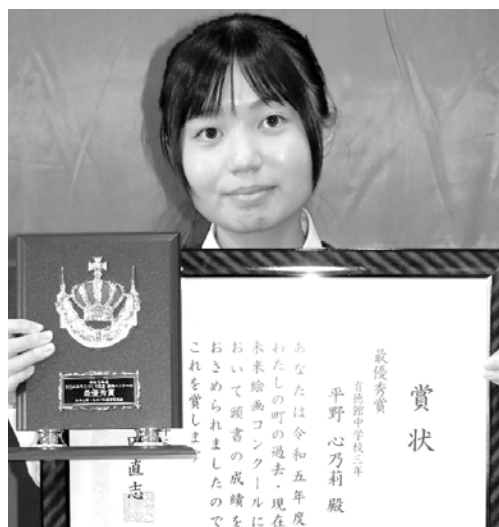 賞状
最優秀賞
育徳館中学校三年
平野 心乃莉 殿
あなたは令和五年度
わたしの町の過去・現在
未来絵画コンクールに
おいて頭書の成績を
おさめられましたので
これを賞します
直志
最優秀賞